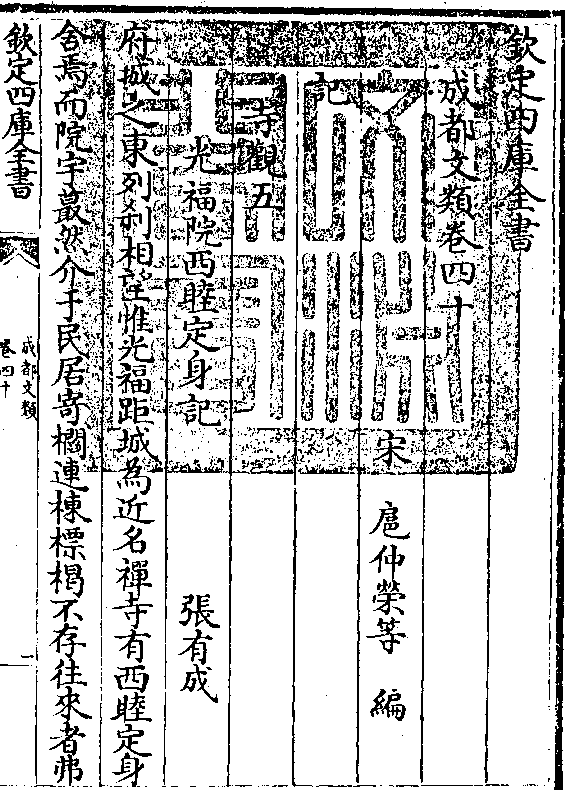 欽定四庫全書
成都文類卷四十
宋 扈仲榮等 編
記
寺觀五
光福院西睦定身記 張有成
府城之東列刹相望惟光福距城為近名禪寺有西睦定身
舍焉而院宇蕞然介于民居寄櫩連棟標楬不存往來者弗
欽定四庫全書
成都文類
卷四十
一